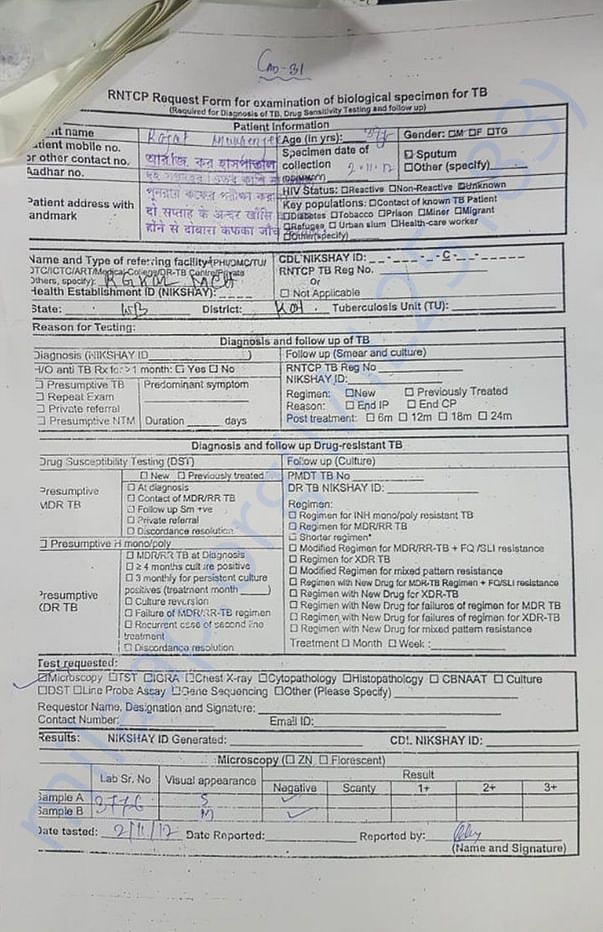 CAD-31
RNTCP Request Form for examination of biological specimen for TB
(Required for Diagnosis of TB, Drug Sensitivity Testing and follow up)
Patient Information
nt name Rajat Mukherjee Age (in yrs): Gender: □M □F □TG
atient mobile no.
or other contact no.
Specimen date of
collection 2.11.17
(DDMMYY)
□ Sputum
□ Other (specify)
Aadhar no.
আর জি কর হাসপাতাল
পুনরায় কফের পরীক্ষা করা
दो सप्ताह के अन्दर खाँसि
होने से दोबारा कफका जाँच
Patient address with
andmark
HIV Status: □Reactive □Non-Reactive □Unknown
Key populations: □Contact of known TB Patient
□Diabetes □Tobacco □Prison □Miner □Migrant
□Refugee □Urban slum □Health-care worker
□Other(specify)
Name and Type of referring facility (PHI/DMC/TU/
DTC/ICTC/ART/Medical College/DR-TB Centre/Private
Others, specify): RGKM MCH
Health Establishment ID (NIKSHAY):
CDL NIKSHAY ID: _ _ - _ _ _ - _ C - _ _ _ _ _
RNTCP TB Reg No.
Or
□ Not Applicable
State: WB District: Kol. Tuberculosis Unit (TU):
Reason for Testing:
Diagnosis and follow up of TB
Diagnosis (NIKSHAY ID ______)
H/O anti TB Rx for >1 month: □ Yes □ No
□ Presumptive TB Predominant symptom
□ Repeat Exam
□ Private referral
□ Presumptive NTM Duration ______ days
Follow up (Smear and culture)
RNTCP TB Reg No
NIKSHAY ID:
Regimen: □New □ Previously Treated
Reason: □ End IP □ End CP
Post treatment: □ 6m □ 12m □ 18m □ 24m
Diagnosis and follow up Drug-resistant TB
Drug Susceptibility Testing (DST)
□ New □ Previously treated
Presumptive
MDR TB
□ At diagnosis
□ Contact of MDR/RR TB
□ Follow up Sm +ve
□ Private referral
□ Discordance resolution
□ Presumptive H mono/poly
Presumptive
XDR TB
□ MDR/RR TB at Diagnosis
□ ≥ 4 months culture positive
□ 3 monthly for persistent culture
positives (treatment month ____)
□ Culture reversion
□ Failure of MDR/RR-TB regimen
□ Recurrent case of second line
treatment
□ Discordance resolution
Follow up (Culture)
PMDT TB No
DR TB NIKSHAY ID:
Regimen:
□ Regimen for INH mono/poly resistant TB
□ Regimen for MDR/RR TB
□ Shorter regimen*
□ Modified Regimen for MDR/RR-TB + FQ /SLI resistance
□ Regimen for XDR TB
□ Modified Regimen for mixed pattern resistance
□ Regimen with New Drug for MDR-TB Regimen + FQ/SLI resistance
□ Regimen with New Drug for XDR-TB
□ Regimen with New Drug for failures of regimen for MDR TB
□ Regimen with New Drug for failures of regimen for XDR-TB
□ Regimen with New Drug for mixed pattern resistance
Treatment □ Month □ Week :
Test requested:
□Microscopy □TST □IGRA □Chest X-ray □Cytopathology □Histopathology □ CBNAAT □ Culture
□DST □Line Probe Assay □Gene Sequencing □Other (Please Specify)
Requestor Name, Designation and Signature:
Contact Number: Email ID:
Results: NIKSHAY ID Generated: CDL NIKSHAY ID:
Microscopy (□ ZN □ Florescent)
Lab Sr. No Visual appearance Result
Negative Scanty 1+ 2+ 3+
Sample A 3776 S ✓
Sample B M ✓
Date tested: 2/11/17 Date Reported: Reported by:
(Name and Signature)